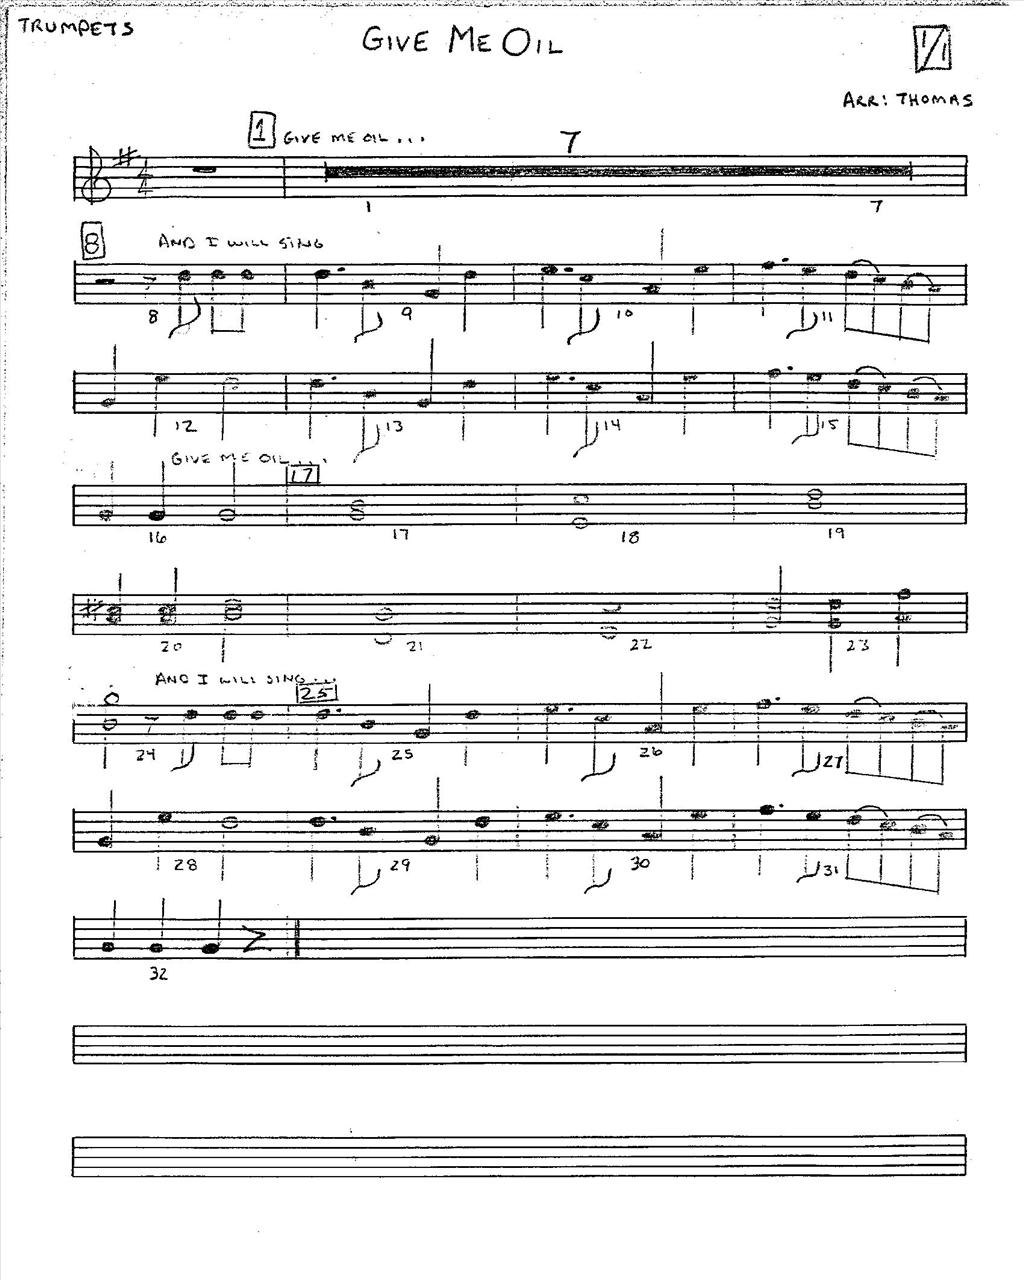 TRUMPETS
GIVE ME OIL
1/1
ARR: THOMAS
1 GIVE ME OIL... 7
1 7
8 AND I WILL SING
8 9 10 11
12 13 14 15
GIVE ME OIL... 17
16 17 18 19
20 21 22 23
AND I WILL SING... 25
24 25 26 27
28 29 30 31
32